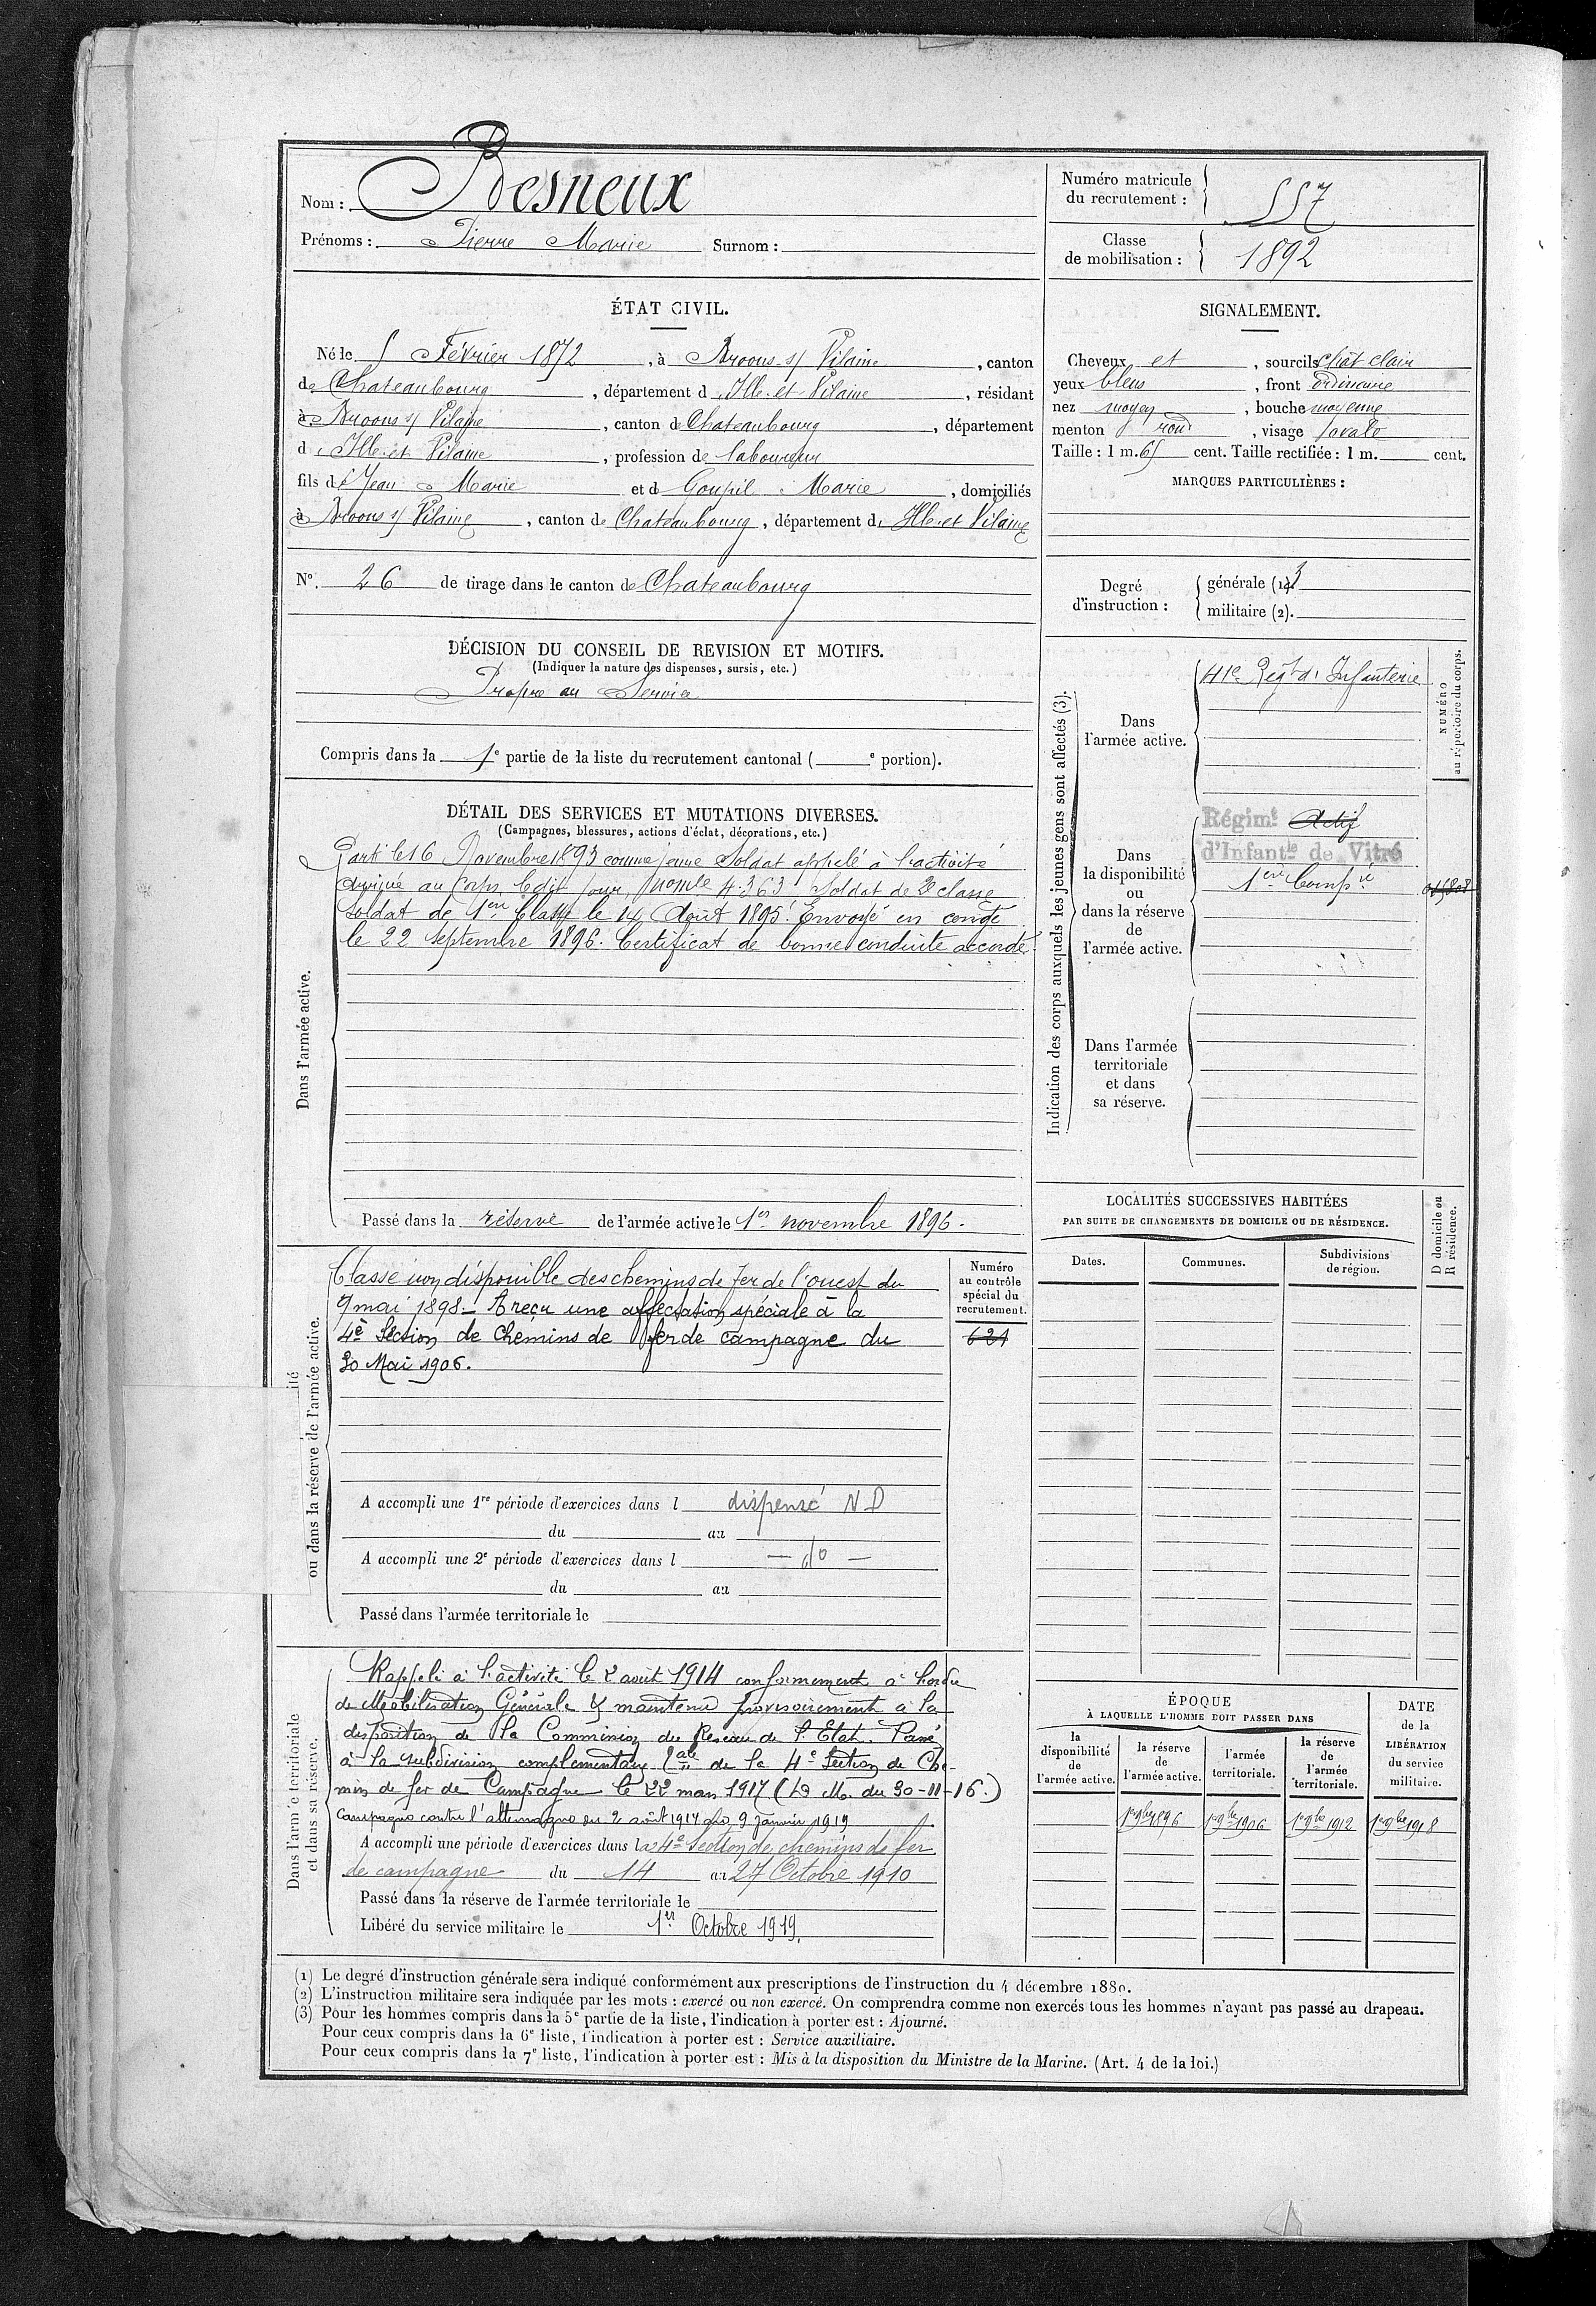 Nom : Besneux
Prénoms : Pierre Marie Surnom :
Numéro matricule du recrutement : 557
Classe de mobilisation : 1892
ÉTAT CIVIL.
Né le 5 Février 1872, à Broons s/ Vilaine, canton
de Chateaubourg, département d'Ille et Vilaine, résidant
à Broons s/ Vilaine, canton de Chateaubourg, département
d'Ille et Vilaine, profession de laboureur
fils de Jean Marie et de Goupil Marie, domiciliés
à Broons s/ Vilaine, canton de Chateaubourg, département d'Ille et Vilaine
N° 26 de tirage dans le canton de Chateaubourg
DÉCISION DU CONSEIL DE REVISION ET MOTIFS.
(Indiquer la nature des dispenses, sursis, etc.)
Propre au Service
Compris dans la 1e partie de la liste du recrutement cantonal ( e portion).
SIGNALEMENT.
Cheveux et, sourcils chât clair
yeux bleus, front ordinaire
nez moyen, bouche moyenne
menton rond, visage ovale
Taille : 1 m. 65 cent. Taille rectifiée : 1 m. cent.
MARQUES PARTICULIÈRES :
Degré d'instruction :
générale (1). 3
militaire (2).
DÉTAIL DES SERVICES ET MUTATIONS DIVERSES.
(Campagnes, blessures, actions d'éclat, décorations, etc.)
Dans l'armée active.
Parti le 16 Novembre 1893 comme jeune Soldat appelé à l'activité
Arrivé au Corps ledit jour No mle 4.363 Soldat de 2e classe
Soldat de 1ere Classe le 14 Août 1895. Envoyé en congé
le 22 Septembre 1896. Certificat de bonne conduite accordé
Passé dans la réserve de l'armée active le 1er novembre 1896.
Indication des corps auxquels les jeunes gens sont affectés (3).
NUMÉRO
au répertoire du corps.
Dans
l'armée active.
41e Régt d'Infanterie
Dans
la disponibilité
ou
dans la réserve
de
l'armée active.
Régimt Actif
d'Infantie de Vitré
1ere Compie
Dans l'armée
territoriale
et dans
sa réserve.
LOCALITÉS SUCCESSIVES HABITÉES
PAR SUITE DE CHANGEMENTS DE DOMICILE OU DE RÉSIDENCE.
D domicile ou
R résidence.
Dates.
Communes.
Subdivisions
de région.
ou dans la réserve de l'armée active.
Numéro
au contrôle
spécial du
recrutement.
621
Classé non disponible des chemins de fer de l'ouest du
7 mai 1898. A reçu une affectation spéciale à la
4e Section de chemins de fer de campagne du
30 Mai 1906.
A accompli une 1re période d'exercices dans l dispensé N D
du au
A accompli une 2e période d'exercices dans l — do —
du au
Passé dans l'armée territoriale le
Dans l'armée territoriale
et dans sa réserve.
Rappelé à l'activité le 2 août 1914 conformement à l'ordre
de Mobilisation Générale & maintenu provisoirement à la
disposition de la Commission du Reseau de l'Etat. Passé
à la subdivision complementaire tale de la 4e Section de Che-
min de fer de Campagne le 22 mars 1917 (D. M. du 30-11-16.)
Campagne contre l'allemagne du 2 août 1914 au 9 janvier 1919
A accompli une période d'exercices dans la 4e Section de chemins de fer
de campagne du 14 au 27 Octobre 1910
Passé dans la réserve de l'armée territoriale le
Libéré du service militaire le 1er Octobre 1919.
ÉPOQUE
À LAQUELLE L'HOMME DOIT PASSER DANS
la
disponibilité
de
l'armée active.
la réserve
de
l'armée active.
l'armée
territoriale.
la réserve
de
l'armée
territoriale.
DATE
de la
LIBÉRATION
du service
militaire.
1er 9bre 1896
1er 9bre 1906
1er 9bre 1912
1er 9bre 1918
(1) Le degré d'instruction générale sera indiqué conformément aux prescriptions de l'instruction du 4 décembre 1880.
(2) L'instruction militaire sera indiquée par les mots : exercé ou non exercé. On comprendra comme non exercés tous les hommes n'ayant pas passé au drapeau.
(3) Pour les hommes compris dans la 5e partie de la liste, l'indication à porter est : Ajourné.
Pour ceux compris dans la 6e liste, l'indication à porter est : Service auxiliaire.
Pour ceux compris dans la 7e liste, l'indication à porter est : Mis à la disposition du Ministre de la Marine. (Art. 4 de la loi.)